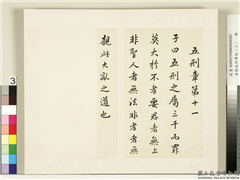 五刑章第十一
子曰五刑之屬三千而罪
莫大於不孝要君者無上
非聖人者無法非孝者無
親此大亂之道也
3